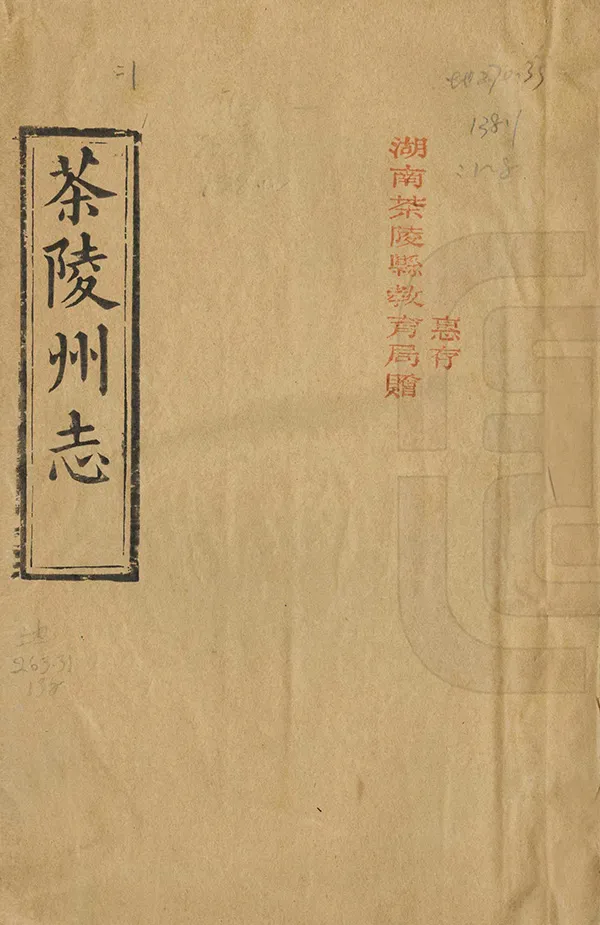 惠存
湖南茶陵縣教育局贈
茶陵州志
地270.35
138
地
263.31
138